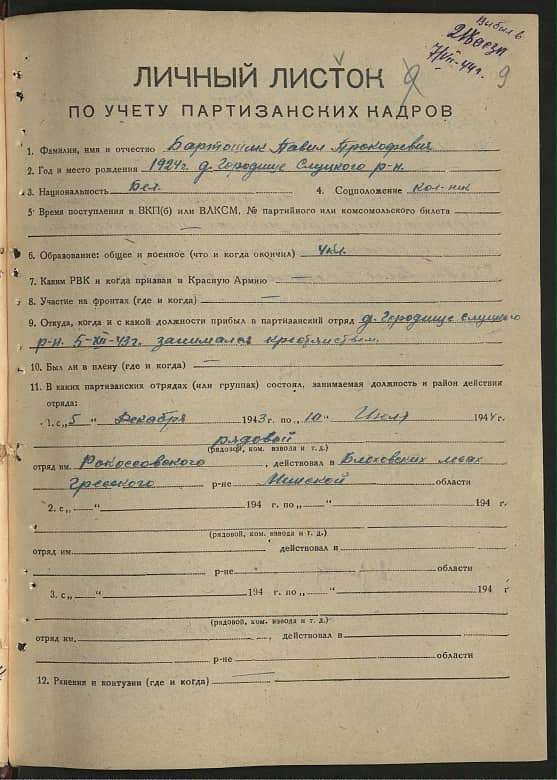 Выбыл в
7/VII-44г.
9
ЛИЧНЫЙ ЛИСТОК
ПО УЧЕТУ ПАРТИЗАНСКИХ КАДРОВ
1. Фамилия, имя и отчество Бартошик Павел Прокофевич
2. Год и место рождения 1924г. д. Городище Слуцкого р-н.
3. Национальность Бел. 4. Соцположение Кол-ник
5. Время поступления в ВКП(б) или ВЛКСМ, № партийного или комсомольского билета
6. Образование: общее и военное (что и когда окончил) 4кл.
7. Каким РВК и когда призван в Красную Армию —
8. Участие на фронтах (где и когда) —
9. Откуда, когда и с какой должности прибыл в партизанский отряд д. Городище Слуцкого
р-н. 5-XII-43г. занимался крестьянством.
10. Был ли в плену (где и когда) —
11. В каких партизанских отрядах (или группах) состоял, занимаемая должность и район действия
отряда:
1. с „5“ Декабря 1943 г. по „10“ Июля 1944 г.
рядовой
(рядовой, ком. взвода и т. д.)
отряд им. Рокоссовского, действовал в лесах
Гресского р-не Минской области
2. с „ “ 194 г. по „ “ 194 г.
(рядовой, ком. взвода и т. д.)
отряд им. действовал в
р-не области
3. с „ “ 194 г. по „ “ 194 г
(рядовой, ком. взвода и т. д.)
отряд им. , действовал в
р-не области
12. Ранения и контузии (где и когда) —